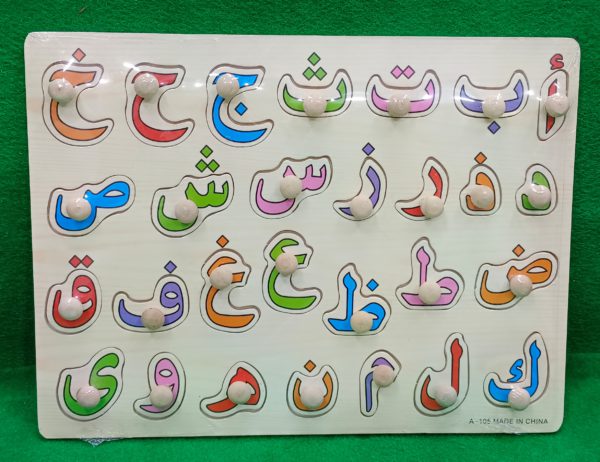 أ ب ت ث ج ح خ
د ذ ر ز س ش ص
ض ط ظ ع غ ف ق
ك ل م ن هـ و ى
A-105 MADE IN CHINA